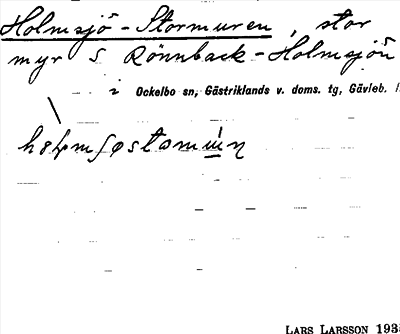 Holmsjö-Stormuren, stor
myr S Rönnback-Holmsjön
i Ockelbo sn, Gästriklands v. doms. tg, Gävleb.
LARS LARSSON 193